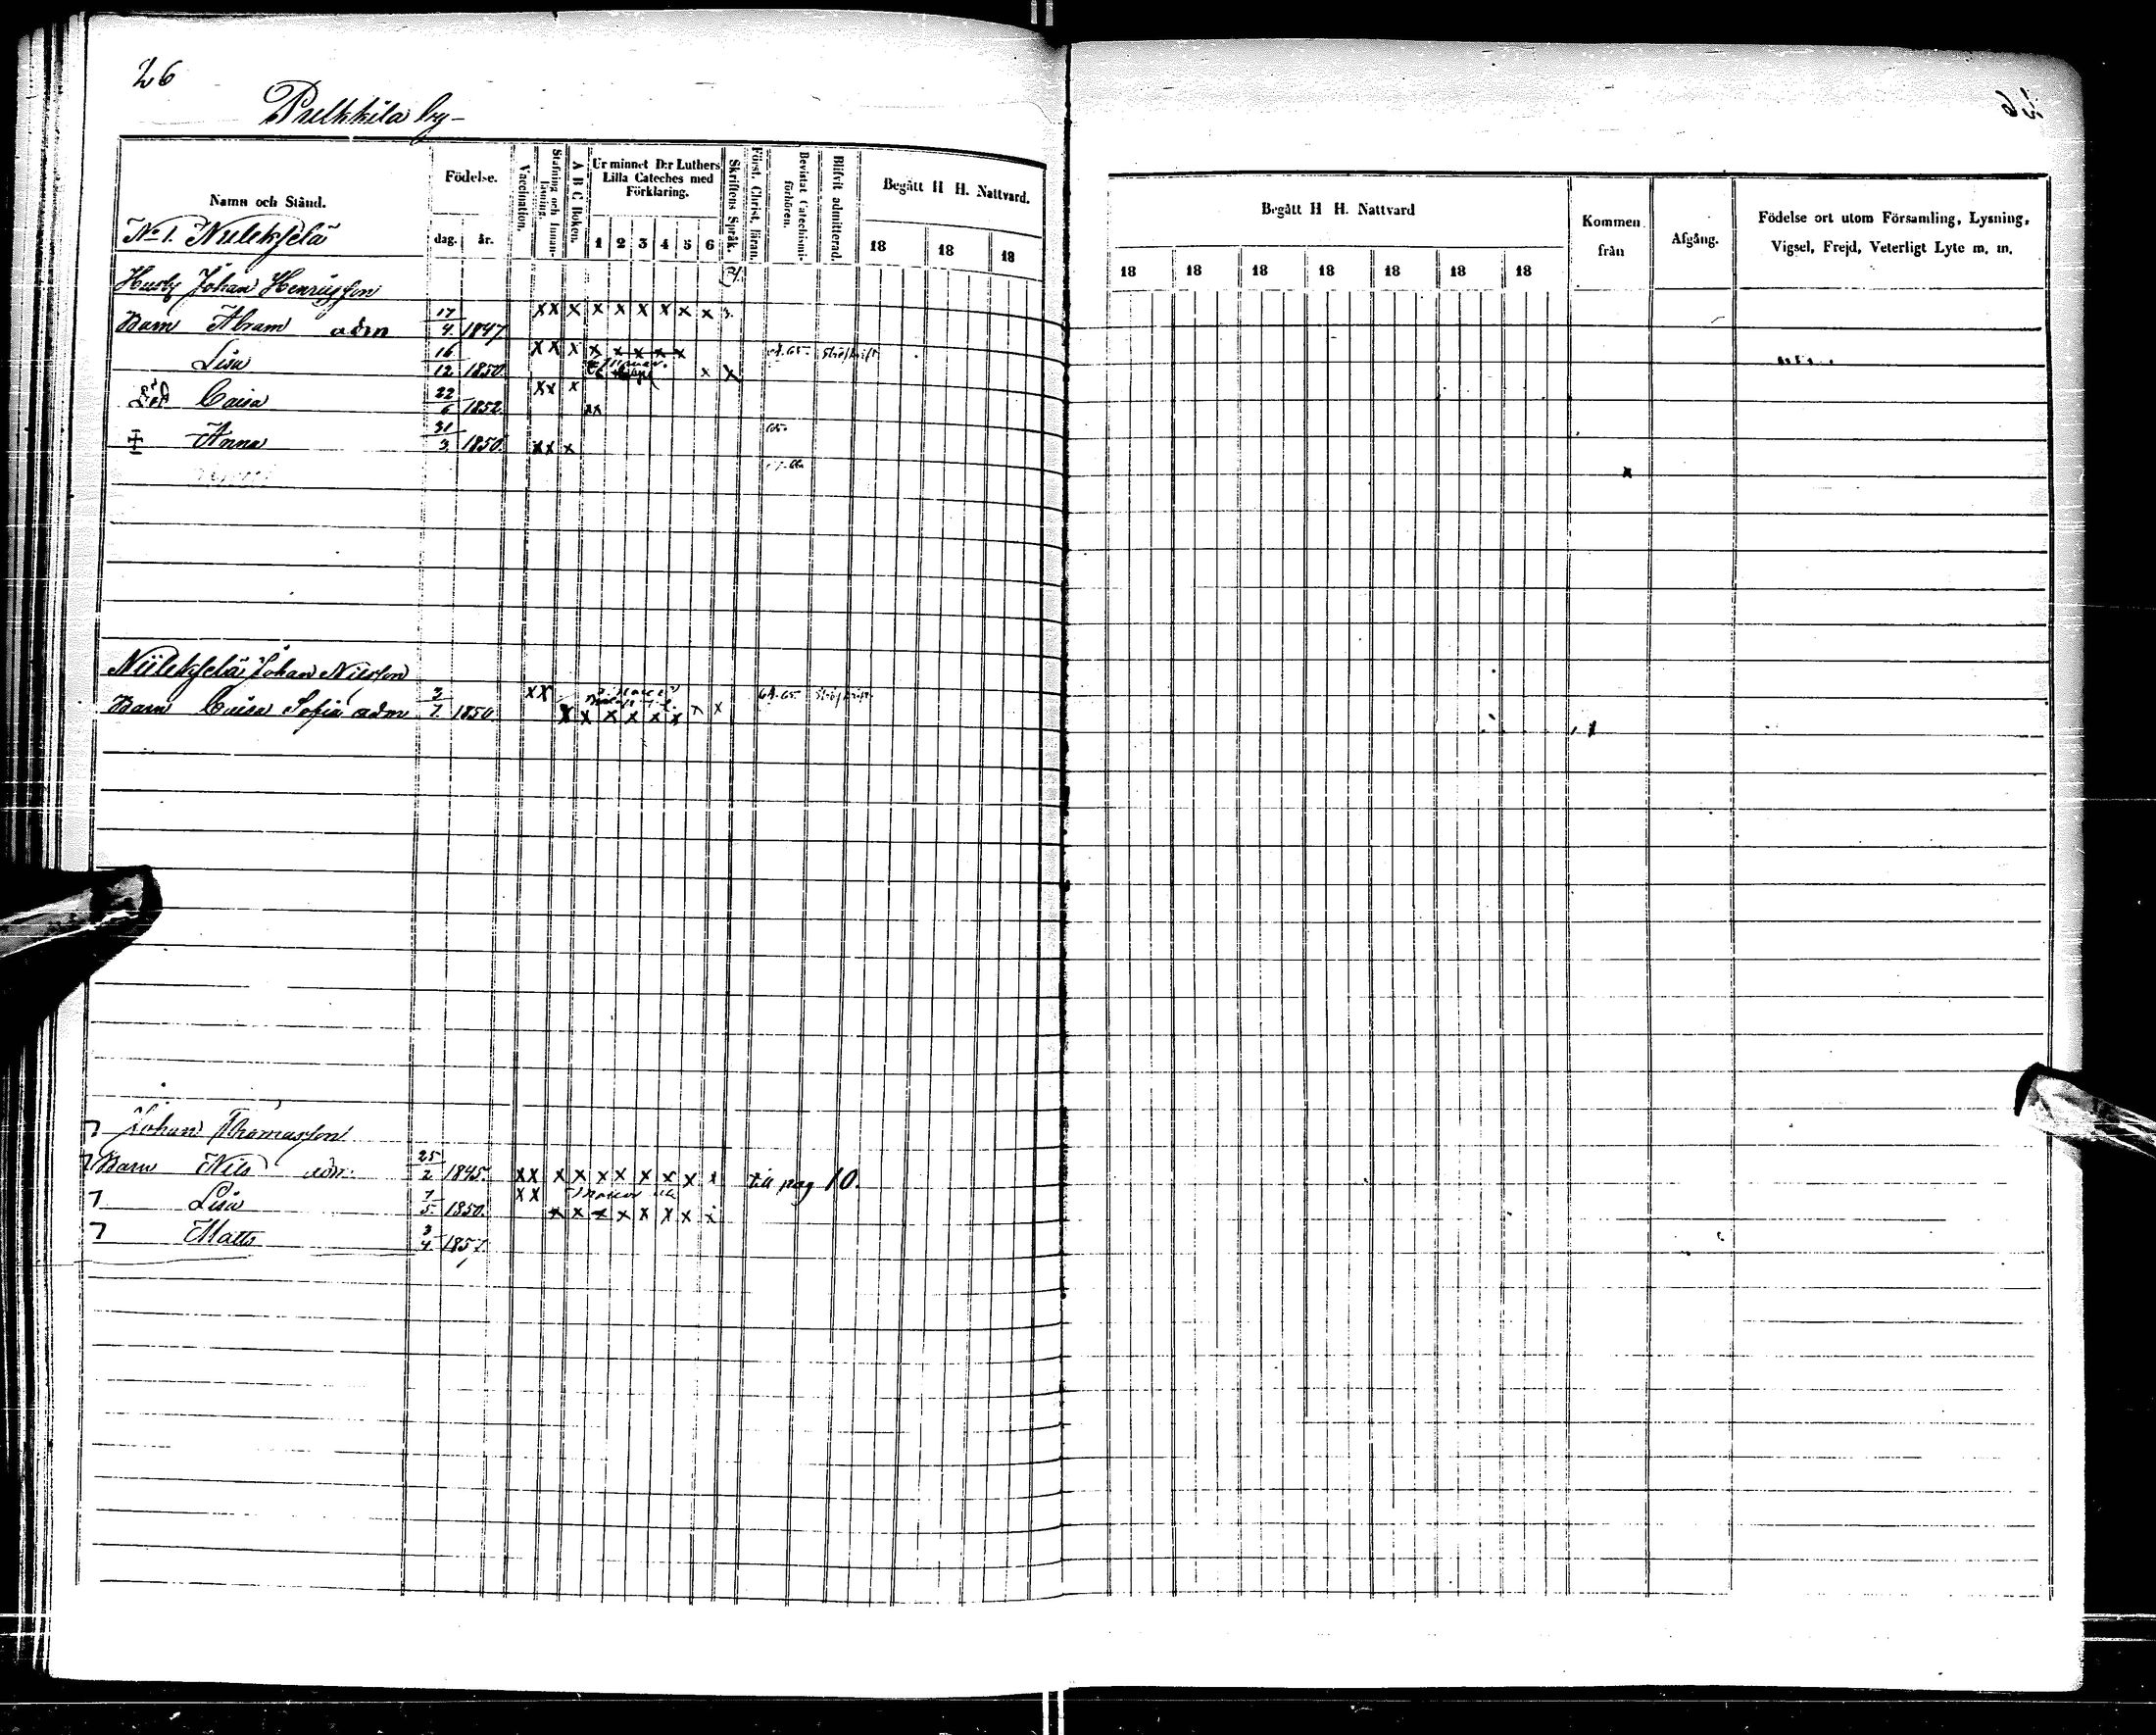 26
26
by
Namn och Stånd.
Födelse.
dag. år.
Vaccination.
Stafning och Innanläsning.
A B C Boken.
Ur minnet D:r Luthers Lilla Cateches med Förklaring.
1 2 3 4 5 6
Skriftens Språk.
Först. Christ. läran.
Bevistat Catechismiförhören.
Blifvit admitterad.
Begått H H. Nattvard.
18 18 18
Begått H H. Nattvard
18 18 18 18 18 18 18
Kommen från
Afgång.
Födelse ort utom Församling, Lysning, Vigsel, Frejd, Veterligt Lyte m. m.
No 1.
Johan Henriksson
Barn Abram adm 17/4. 1847. xx x x x x x x x 3.
Lisa 16/12 1850 xx x x x x x x x x
Caisa 22/6 1852. xx x xx
Anna 31/3. 1850. xx x 65
Johan Nilsson
Barn Caisa Sofia adm 3/7. 1850 xx x x x x x x x x 64.65
Johan Thomasson
Barn Nils adm. 25/2 1845. xx x x x x x x x x pag 10.
Lisa 7/5. 1850. xx x x x x x x x x
Matts 3/4 1857.